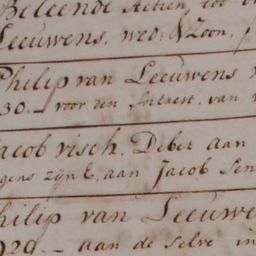 Beleende Actien, tot
Leeuwens. wed: & Zoon.
Philip van Leeuwens
30. – voor den Intrest. van
Jacob visch. Debet aan
gens zijn aan Jacob
Philip van Leeuwe
29. – aan de selve in